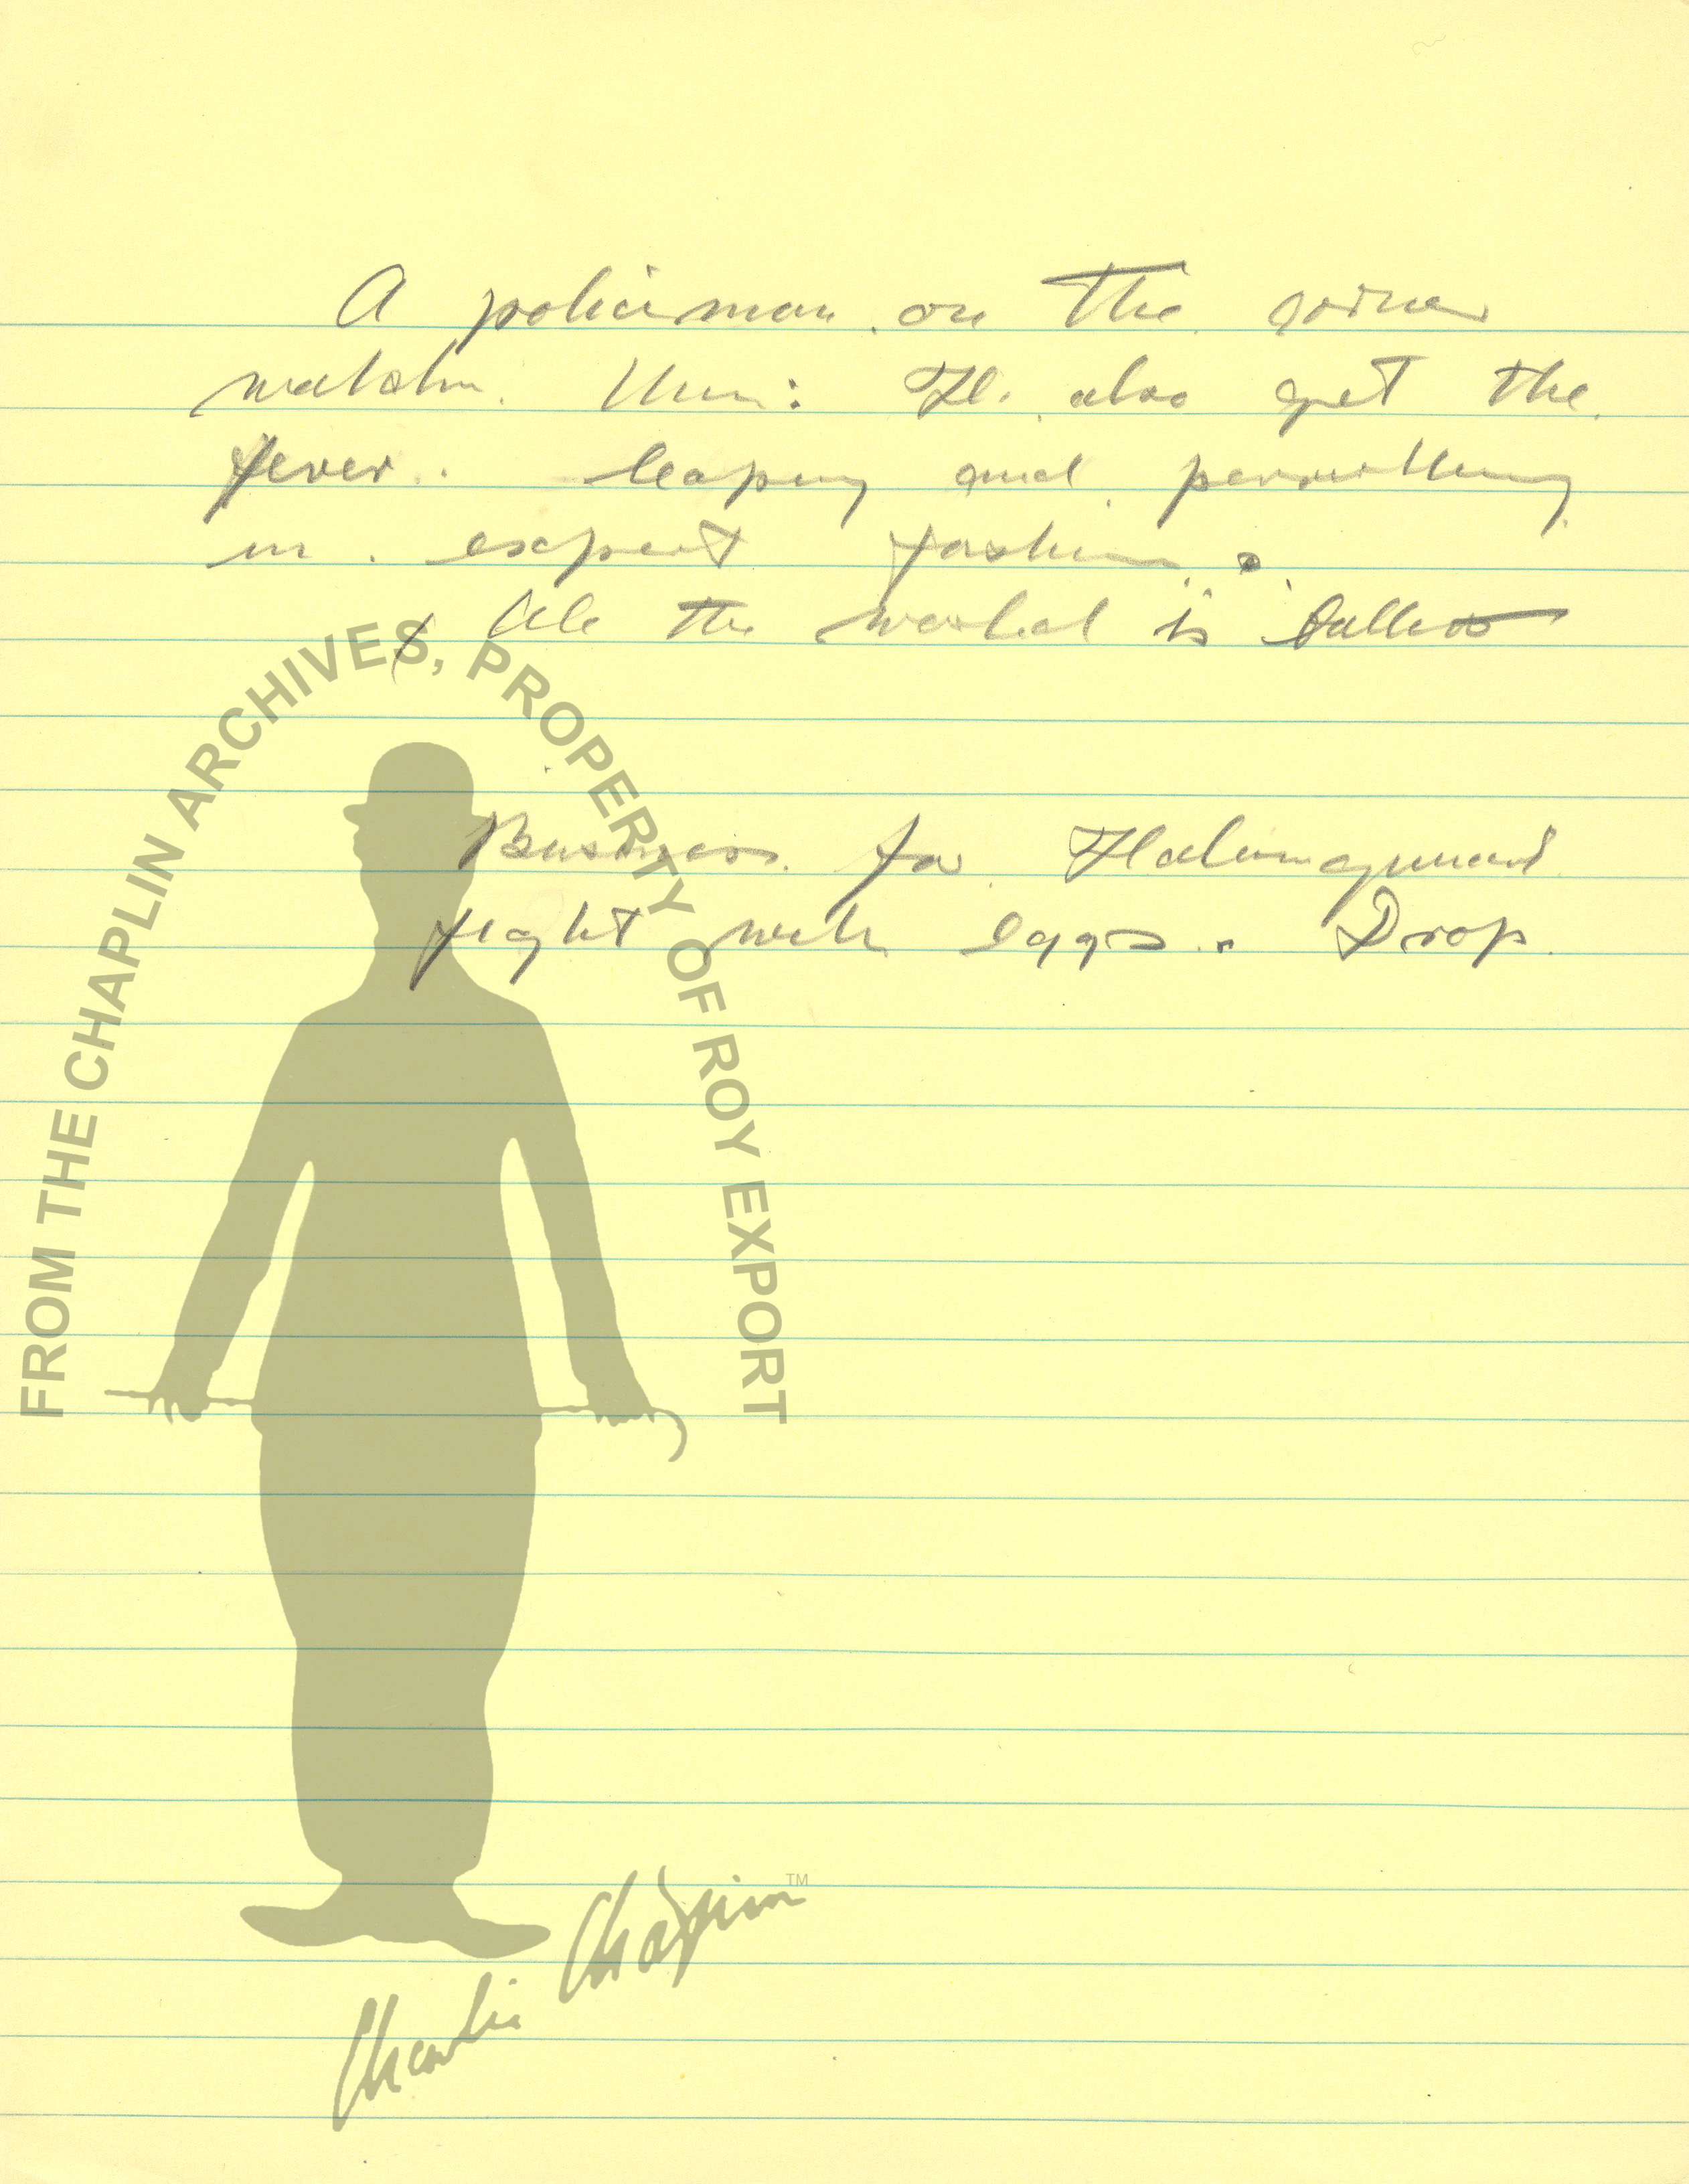 A policeman on the corner
watchin them: He also get the
fever. leaping and pirouetting
in expert fashion.
All the world is ballet
Business for
fight with eggs. Drop
FROM THE CHAPLIN ARCHIVES, PROPERTY OF ROY EXPORT
Charlie Chaplin™